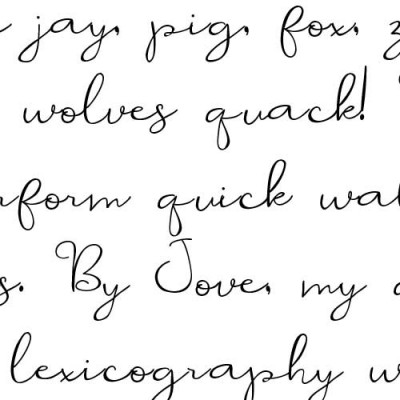 jay, pig, fox, z
wolves quack!
nform quick wal
s. By Jove, my
lexicography w